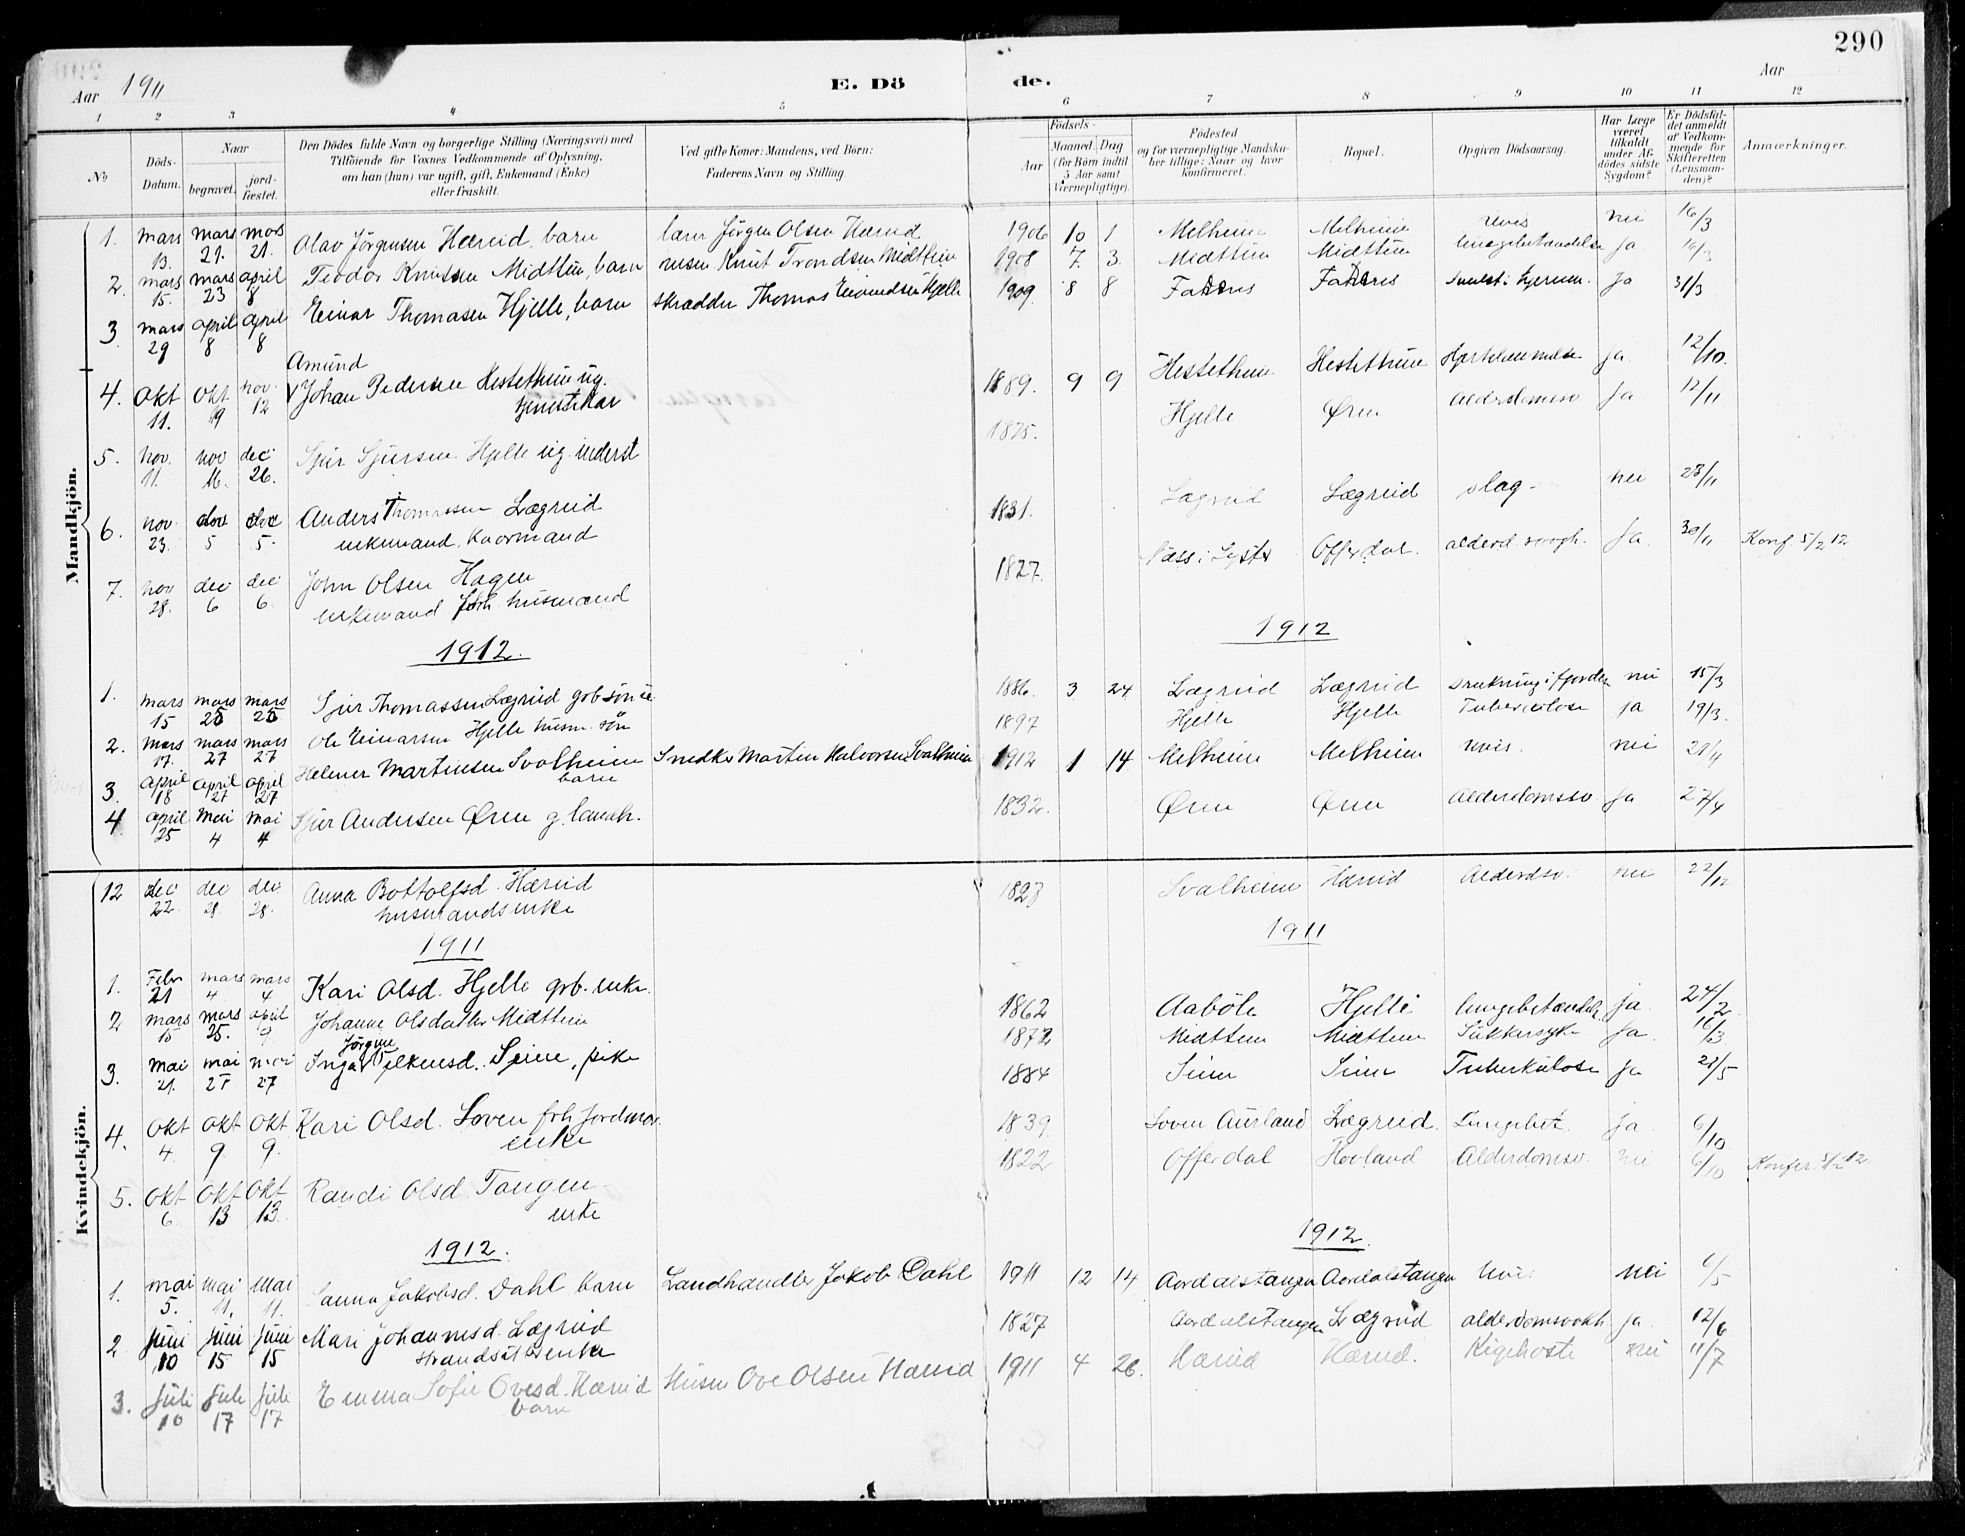 290
Aar 1911
E. Dö de.
Aar
1 2 3 4 5 6 7 8 9 10 11 12
No
Döds-Datum.
Naar
begravet.
jord-fæstet.
Den Dödes fulde Navn og borgerlige Stilling (Næringsvei) med
Tilföiende for Voxnes Vedkommende af Oplysning,
om han (hun) var ugift, gift, Enkemand (Enke)
eller fraskilt.
Ved gifte Koner: Mandens, ved Börn:
Faderens Navn og Stilling.
Födsels-
Aar
Maaned. Dag
(for Börn indtil
5 Aar samt
Værnepligtige).
Födested
og for værnepligtige Mandska-
ber tillige: Naar og hvor
konfirmeret.
Bopæl.
Opgiven Dödsaarsag.
Har Læge
været
tilkaldt
under Af-
dödes sidste
Sygdom?
Er Dödsfal-
det anmeldt
af Vedkom-
mende for
Skifteretten
(Lensman-
den)?
Anmærkninger.
Mandkjön.
1. mars 13. mars 21. mars 21. Olav Jörgensen Hæreid, barn lærer Jörgen Olsen Hæreid 1906 10 1 Melheim Melheim nei 16/3
2. mars 15. mars 23 april 8 Teodor Knutsen Midttun, barn Knut Trondsen Midttun 1908 7. 3. Midttun Midttun lungebetændelse ja 16/3
3. mars 29 april 8 april 8 Einar Thomasen Hjelle, barn skrædder Thomas Eivindsen Hjelle 1909 8 8 Ja 31/3
4. Okt 11. Okt 19 nov. 12 Amund
Johan Pedersen Hestethun ug. tjenestekar 1889. 9 9 Hestethun Hestethun ja 12/10.
5. nov. 11. nov 16. dec. 26. Sjur Sjursen Hjelle ug. inderst 1825. Hjelle Øren Alderdomssv. Ja 12/11
6. nov 23. dec 5 dec 5. Anders Thomassen Lægreid
enkemand, kaarmand 1831. Lægreid Lægreid slag nei 23/11
7. nov 28. dec 6 dec 6. John Olsen Hagen
enkemand fhv. husmand 1827. Næss i Lyster Offerdal. Ja. 30/11 Konf 5/2 12
1912. 1912
1. mars 15 mars 25 mars 25 Sjur Thomassen Lægreid gbr sön 1886. 3 24 Lægreid Lægreid drukning i fjorden nei 15/3
2. mars 17. mars 27 mars 27 Ole Einarsen Hjelle husm. sön 1897 Hjelle Hjelle Tuberculose ja 19/3.
3. april 18 april 27 april 27 Helmer Martinsen Svalheim
barn Snedker Martin Halvorsen Svalheim 1912 1 14 Melheim Melheim nei 21/4
4 april 25 mai 4 mai 4 Sjur Andersen Øren g. 1832. Øren Øren Alderdomssv. ja 27/4
Kvindekjön.
12 dec 22. dec 28. dec 28. Anna Bottolfsd. Hæreid
husmandsenke Svalheim Hæreid Alderdsv. nei 22/12
1911 1911
1. Febr 21 mars 4 mars 4 Kari Olsd. Hjelle grb. enke. 1862 Aaböle Hjelle lungebetændelse ja. 24/2
2 mars 15 mars 25. april 9 Johanne Olsdatter Midttun 1872 Midttun Midttun Sukkersyke ja. 16/3
3. mai 21. mai 27 mai 27 Jörgine
Inga Seim, pike 1884 Seim Seim Tuberkulose ja 21/5
4. Okt 4. Okt 9. Okt 9. Kari Olsd. Loven fhv. Jordmor.
enke 1839 Loven Aurland Lægreid. Lungebet. ja 6/10
5. Okt 6 Okt 13 Okt 13. Randi Olsd. Tangen
enke 1822 Offerdal Hovland Alderdomsv. nei 6/10 Konfer 5/2 12
1912. 1912.
1. mai 5. mai 11. mai 11. Sanna Jakobsd. Dahl barn Landhandler Jakob Dahl 1911 12 14 Aardalstangen Aardalstangen nei 6/5
2 juni 10 juni 15 juni 15 Mari Johannesd. Lægreid
strandsitterenke 1827 Aardalstangen Lægreid ja. 12/6
3. juli 10 juli 17 juli 17 Emma Sofie Ovesd. Hæreid
barn Husm Ove Olsen Hæreid 1911 4 26. Hæreid Hæreid. Kighoste nei 11/7